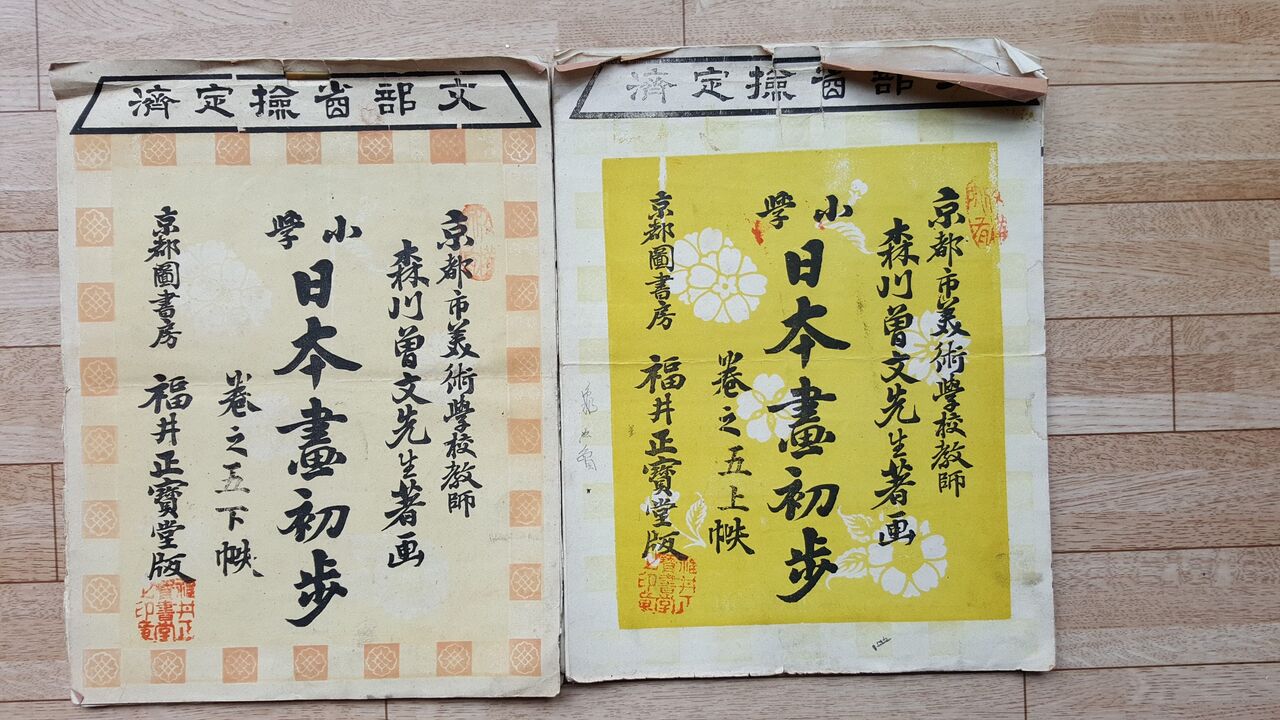 部省撿定濟
京都市美術學校教師
森川曾文先生著画
小學
日本畫初步
卷之五上帙
京都圖書房 福井正寶堂版
文部省撿定濟
京都市美術學校教師
森川曾文先生著画
小學
日本畫初步
卷之五下帙
京都圖書房 福井正寶堂版